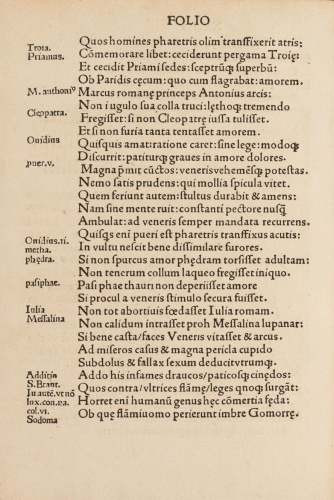 FOLIO
Troia.
Quos homines pharetris olim transfixerit atris:
Priamus.
Cōmemorare libet: ceciderunt pergama Troię:
Et cecidit Priami sedes: sceptrūq; superbū:
Ob Paridis cęcum: quo cum flagrabat: amorem.
M. anthoniꝰ
Marcus romanę princeps Antonius arcis:
Non iugulo sua colla truci: lęthoq; tremendo
Cleopatra.
Fregisset: si non Cleopatrę iussa tulisset.
Et si non furia tanta tentasset amorem.
Ouidius
Quisquis amat: ratione caret: sine lege: modoq;
Discurrit: patiturq; graues in amore dolores.
puer. v.
Magna p̄mit cūctos: veneris vehemēsq; potestas.
Nemo satis prudens: qui mollia spicula vitet.
Quem feriunt autem: stultus durabit & amens:
Nam sine mente ruit: constanti pectore nusq̄
Ambulat: ad veneris semper mandata recurrens.
Quisq̄s eni pueri est pharetris transfixus acutis:
Ouidius. ii.
In vultu nescit bene dissimilare furores.
metha.
phędra.
Si non spurcus amor phędram torsisset adultam:
Non tenerum collum laqueo fregisset iniquo.
pasiphae.
Pasiphae thauri non deperiisset amore
Si procul a veneris stimulo secura fuisset.
Iulia
Non tot abortiuis fœdasset Iulia romam.
Messalina
Non calidum intrasset proh Messalina lupanar:
Si bene casta/faces Veneris vitasset & arcus.
Ad miseros casus & magna pericla cupido
Subdolus & fallax sexum deducit vtrumq;.
Additio
Addo his infames draucos/paticosq; cinędos:
S. Brant.
Quos contra/vltrices flāmę/leges q̄noq; surgāt:
In autē. vt nō
lux. con. na.
Horret eni humanū genus hęc cōmertia fęda:
col. vi.
Ob quę flāmiuomo perierunt imbre Gomorrę.
Sodoma